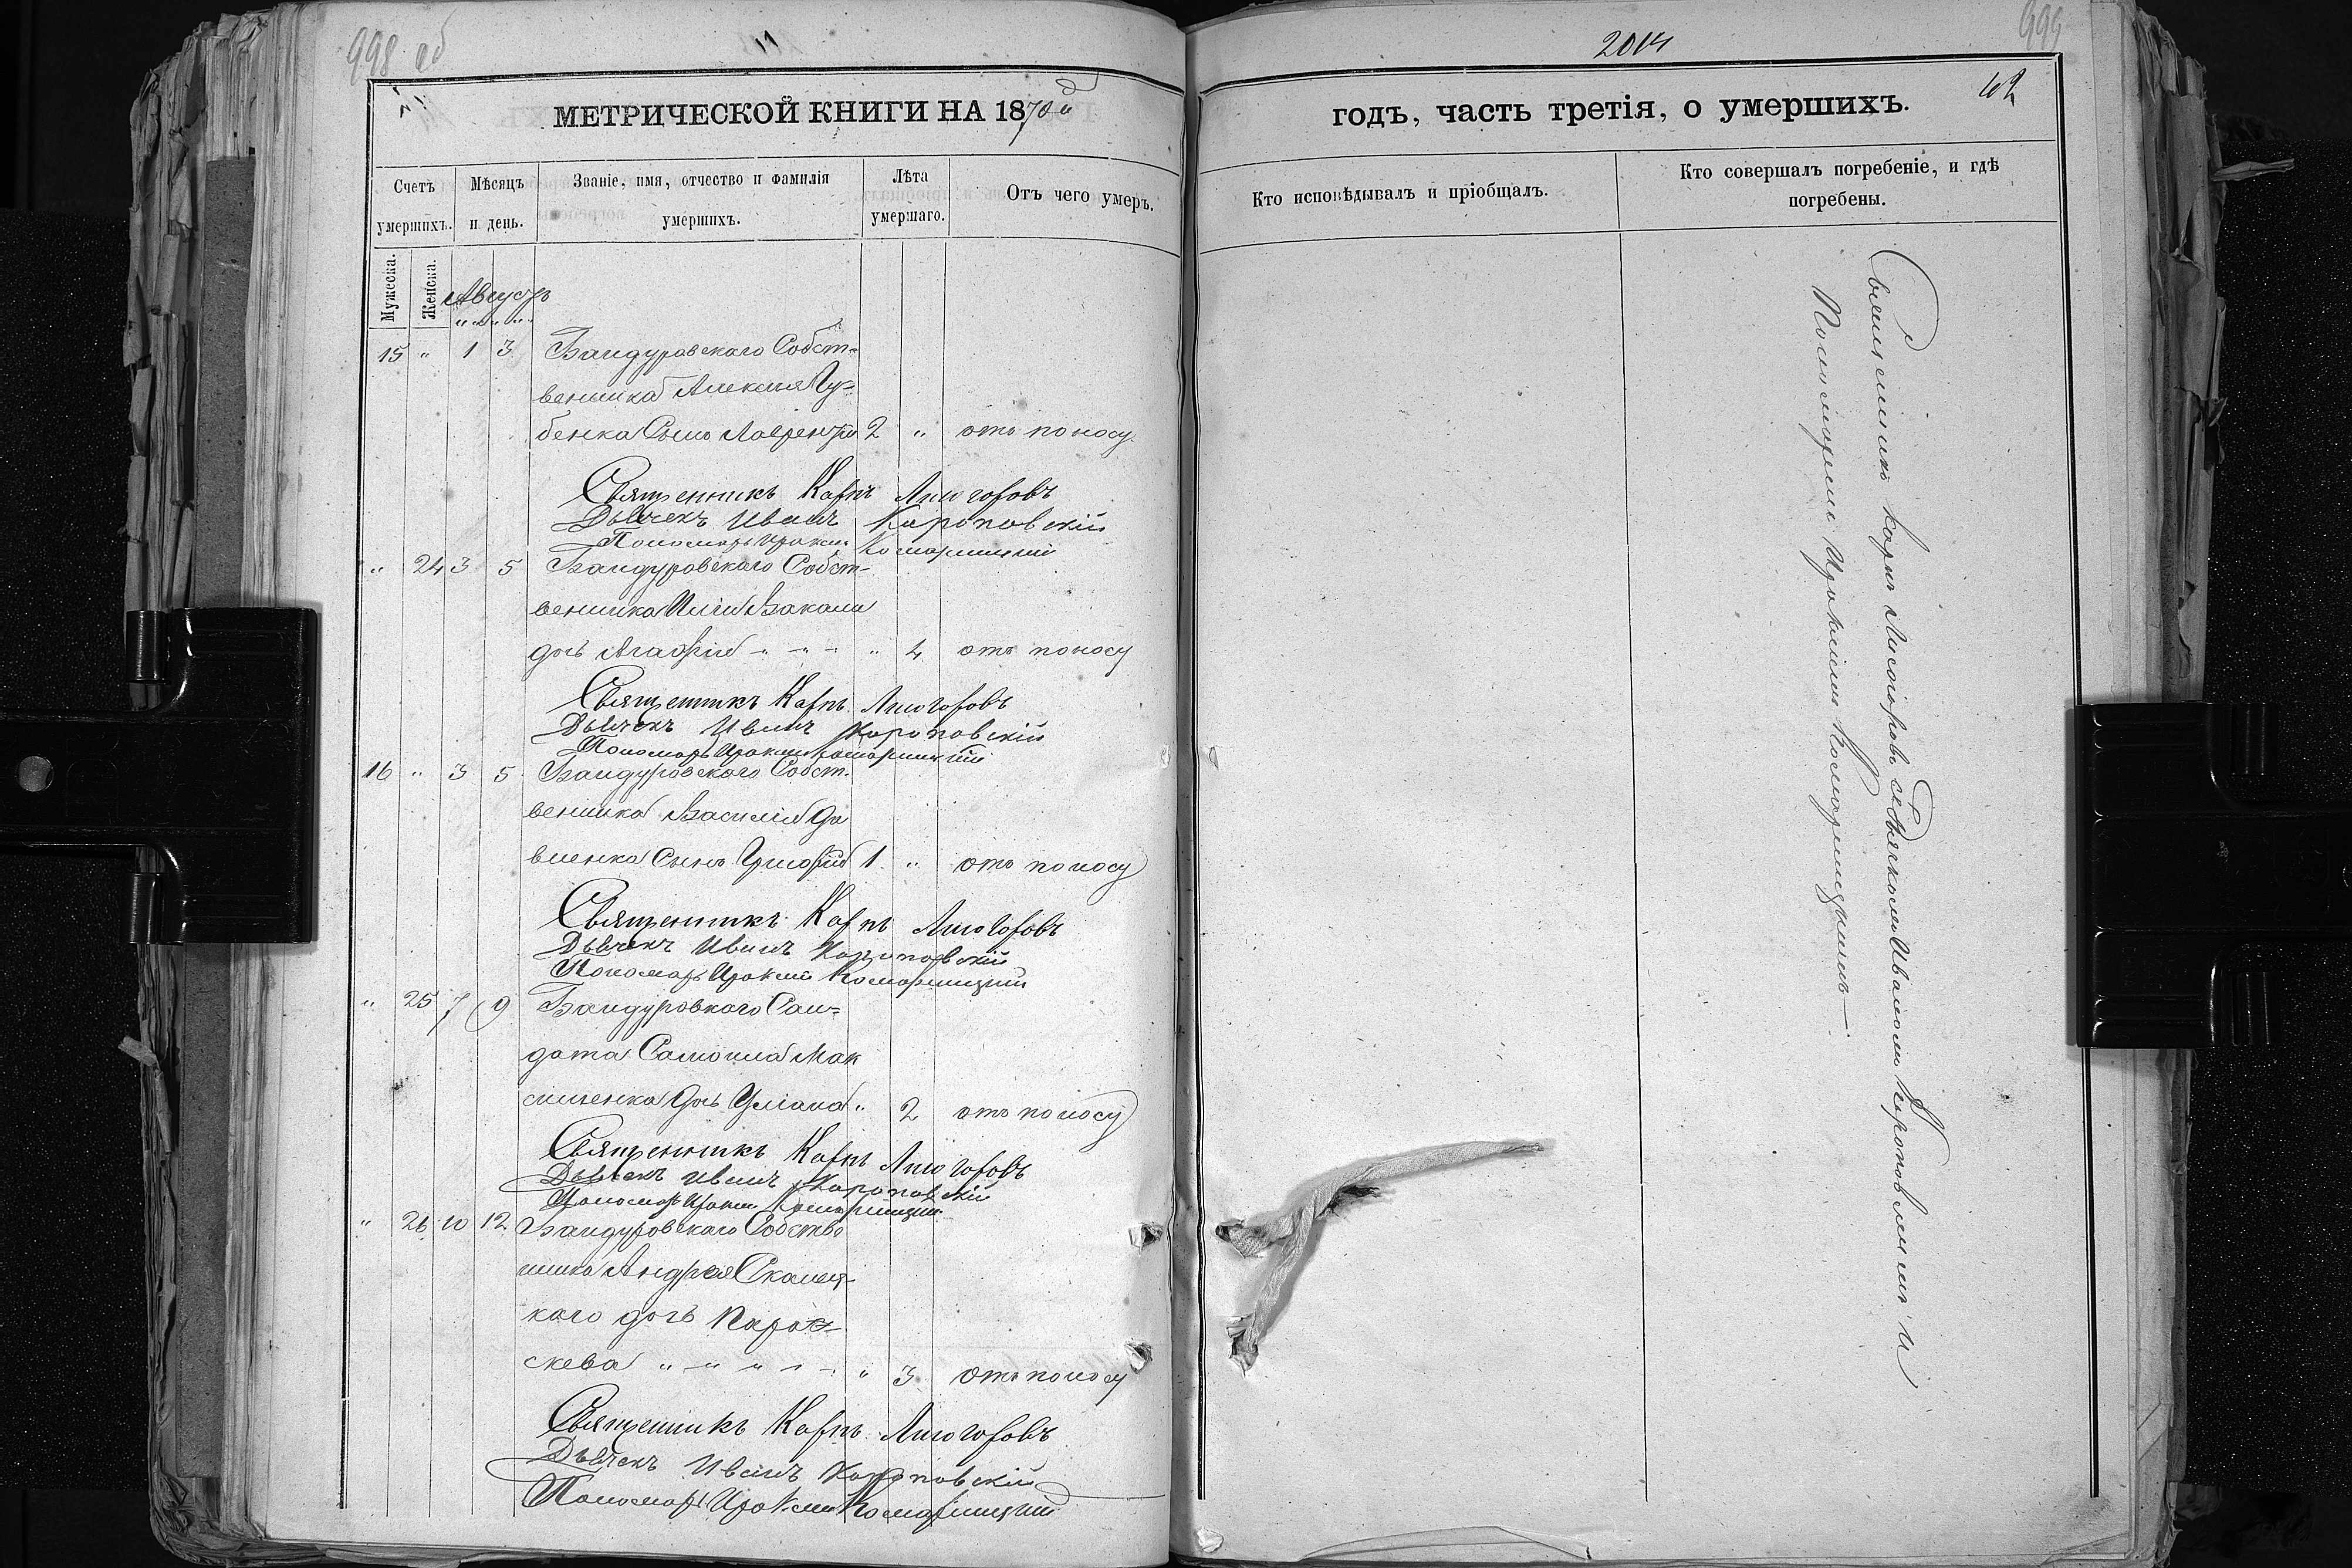 998 об
11
МЕТРИЧЕСКОЙ КНИГИ НА 1870й
Счетъ умершихъ.
Мѣсяцъ и день.
Званіе, имя, отчество и фамилія умершихъ.
Лѣта умершаго.
Отъ чего умеръ.
Мужеска.
Женска.
Августъ
15 " 1 3 Бандуровскаго Собст-
венника Алексѣя Гу-
бенка Сынъ Лаврентій 2 " отъ поносу.
Священникъ Карпъ Лисогоровъ
Дьячекъ Иванъ Короповскій
Пономарь Ираклій Комарницкій
" 24 3 5 Бандуровскаго Собст-
венника Иліи Бакала
дочь Агафія " " " " 4 отъ поносу
Священникъ Карпъ Лисогоровъ
Дьячекъ Иванъ Короповскій
Пономарь Ираклій Комарницкій
16 " 3 5 Бандуровского Собст-
венника Василія
сынъ Григорій 1 " отъ поносу
Священникъ Карпъ Лисогоровъ
Дьячекъ Иванъ Короповскій
Пономарь Ираклій Комарницкій
" 25 7 9 Бандуровкаго Сол-
дата Самоила Мак
сименка дочь Уліана " 2 отъ поносу
Священникъ Карпъ Лисогоровъ
Дьячекъ Иванъ Короповскій
Пономарь Ираклій Комарницкій
" 26 10 12 Бандуровскаго Собстве
нника Андрея
каго дочь Пара-
скева " " " " " 3 отъ поносу
Священникъ Карпъ Лисогоровъ
Дьячекъ Иванъ Короповскій
Пономарь Ираклій Комарницкій
2014
999
годъ, часть третія, о умершихъ.
Кто исповѣдывалъ и пріобщалъ.
Кто совершалъ погребеніе, и гдѣ погребены.
Священникъ Карпъ Лисогоровъ съ Дячкомъ Иваномъ Короповскимъ и
Пономаремъ Иракліемъ Комарницкимъ